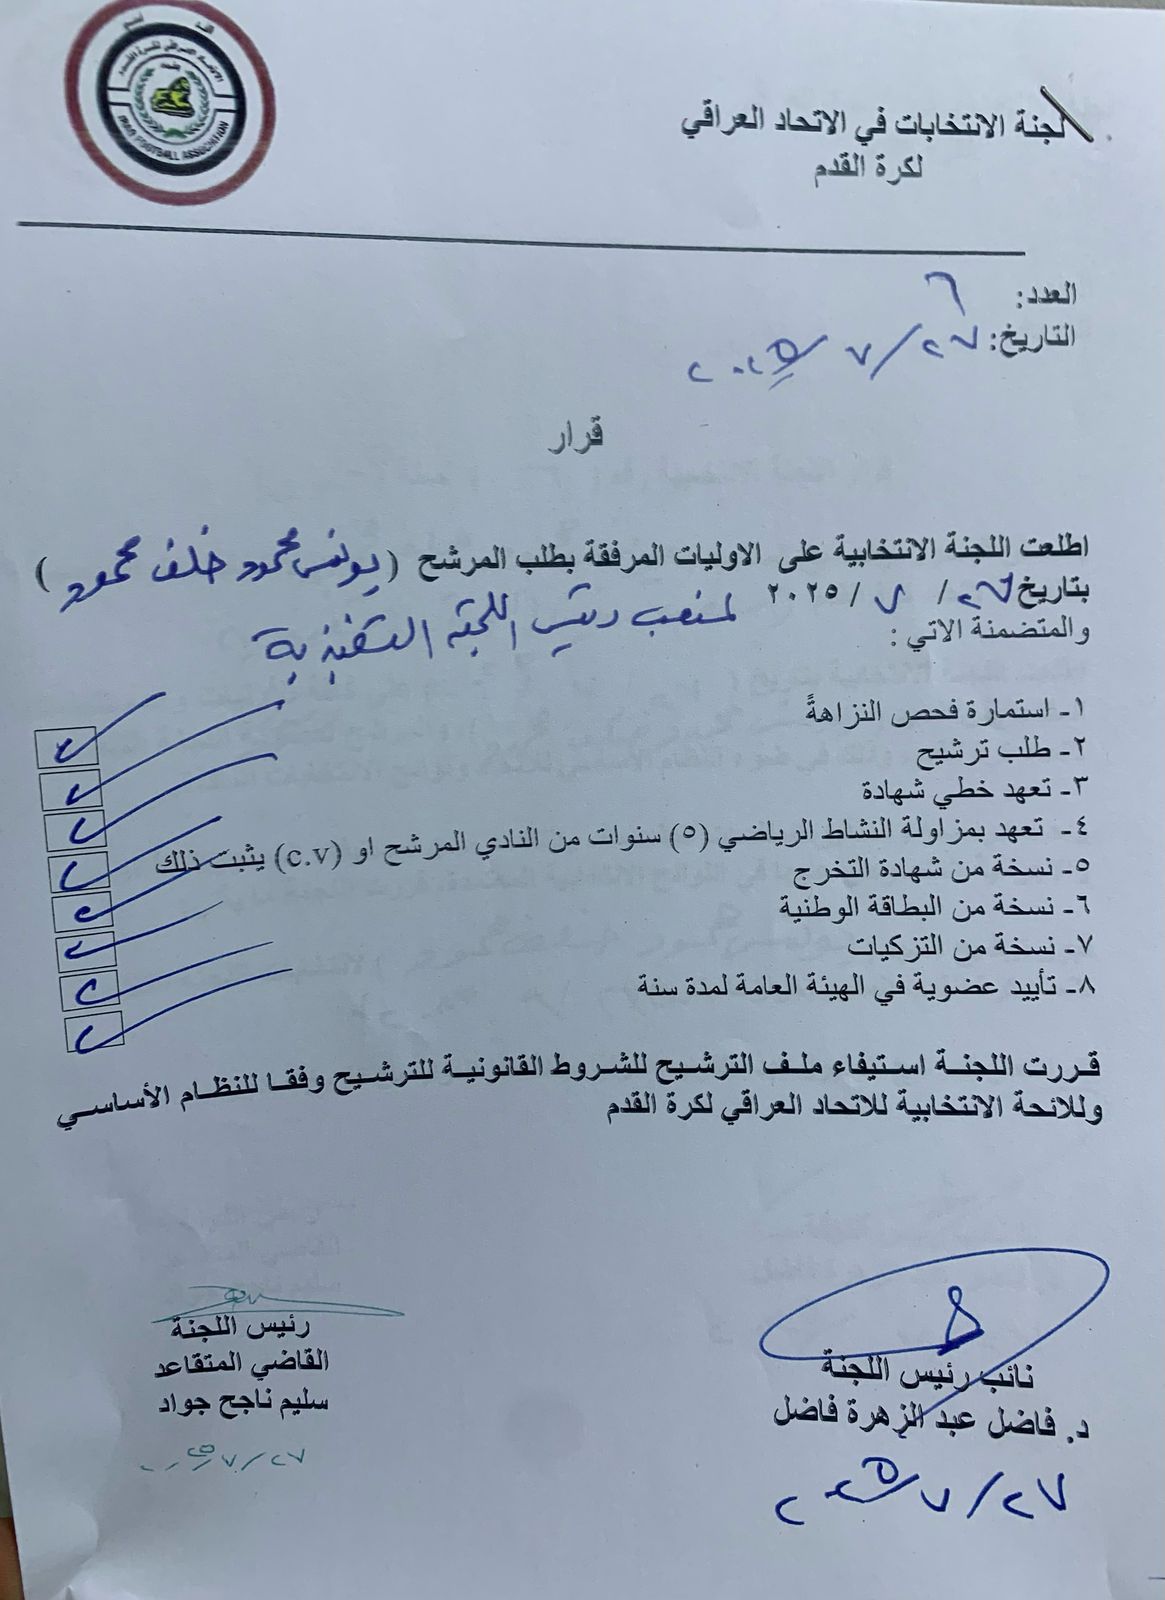 لجنة الانتخابات في الاتحاد العراقي
لكرة القدم
IRAQ FOOTBALL ASSOCIATION
العدد: ٦
التاريخ: ٢٧ / ٧ / ٢٠٢٥
قرار
اطلعت اللجنة الانتخابية على الاوليات المرفقة بطلب المرشح (يونس محمود خلف محمود)
بتاريخ ٢٦ / ٧ / ٢٠٢٥ لمنصب رئيس اللجنة التنفيذية
والمتضمنة الاتي :
١- استمارة فحص النزاهةً
٢- طلب ترشيح
٣- تعهد خطي شهادة
٤- تعهد بمزاولة النشاط الرياضي (٥) سنوات من النادي المرشح او (c.v) يثبت ذلك
٥- نسخة من شهادة التخرج
٦- نسخة من البطاقة الوطنية
٧- نسخة من التزكيات
٨- تأييد عضوية في الهيئة العامة لمدة سنة
قررت اللجنة استيفاء ملف الترشيح للشروط القانونية للترشيح وفقا للنظام الأساسي
وللائحة الانتخابية للاتحاد العراقي لكرة القدم
نائب رئيس اللجنة
د. فاضل عبد الزهرة فاضل
٢٧ / ٧ / ٢٠٢٥
رئيس اللجنة
القاضي المتقاعد
سليم ناجح جواد
٢٧ / ٧ / ٢٠٢٥